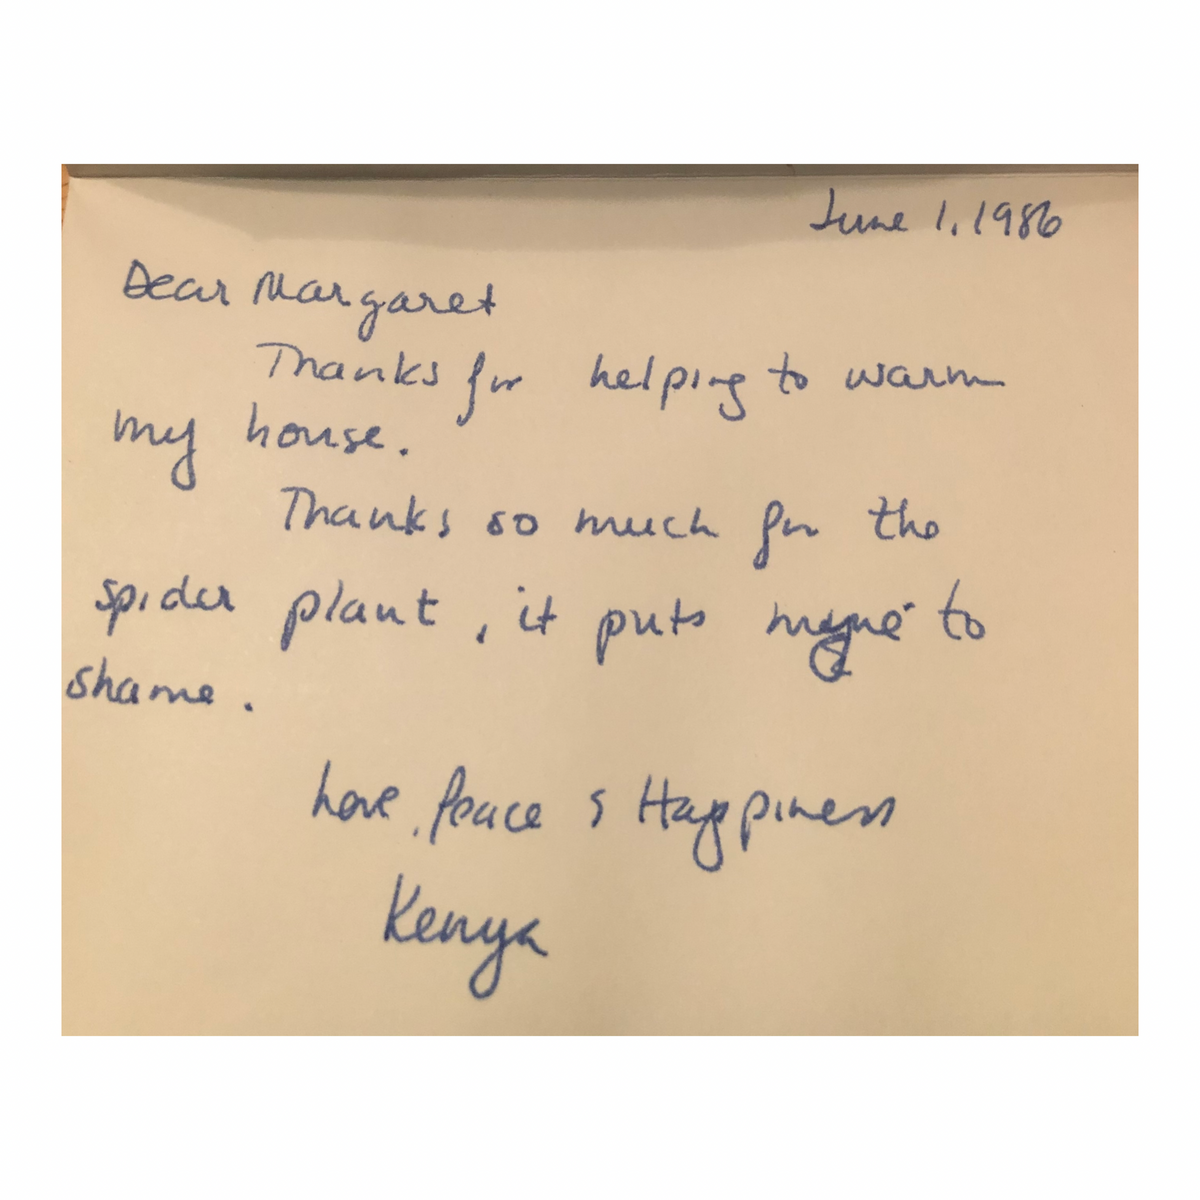 June 1, 1986
Dear Margaret
Thanks for helping to warm
my house.
Thanks so much for the
spider plant, it puts to
shame.
Love, Peace & Happiness
Kenya